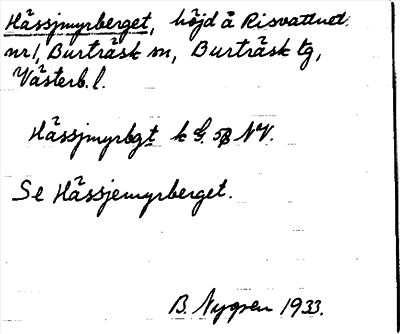 Hässjmyrberget, höjd å Risvattnet
nr1, Burträsk sn, Burträsk tg,
Västerb. l.
Hässjmyrbgt k G. 58 NV.
Se Hässjemyrberget.
B. Nygren 1933.